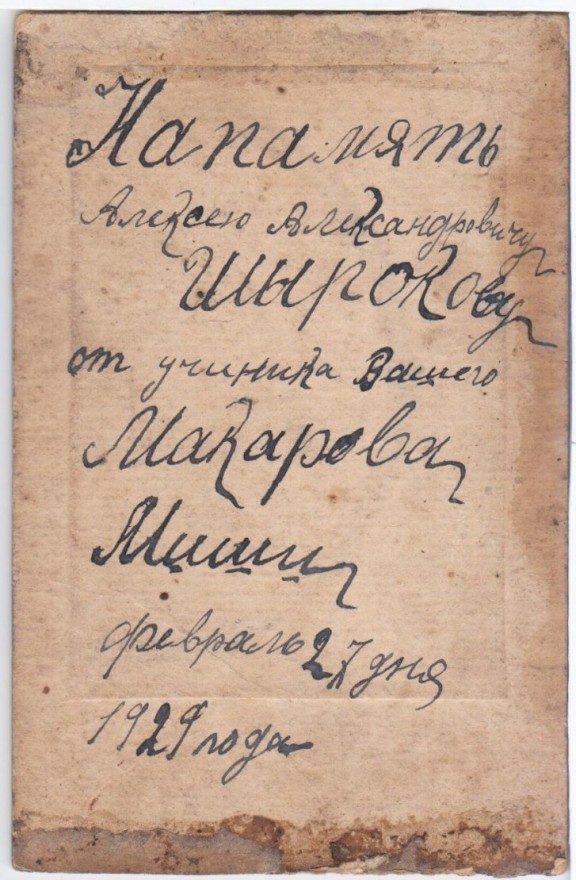 На память
Алексею Александровичу
Шырокову
от учиника Вашего
Макарова
Миши
февраль 27 дня
1929 года